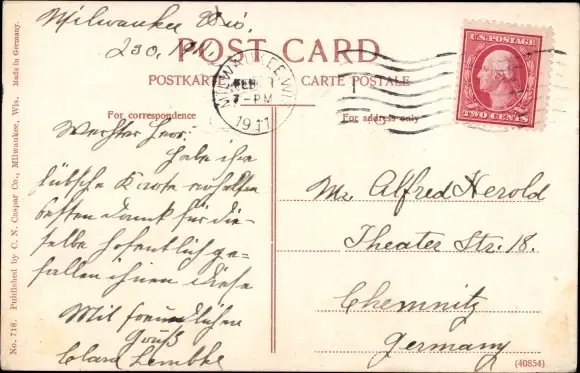 Milwaukee Wis,
POST CARD
POSTKARTE CARTE POSTALE
MILWAUKEE, WIS.
FEB 1
7-PM
1911
U.S. POSTAGE
TWO CENTS
For correspondence
For address only
Werther Herr:
habe ihre
hübsche Karte erhalten
besten Dank für die-
selbe hofentlich ge-
fallen ihnen diese
Mit freundlichen
Gruß
Clara Lembke
Mr. Alfred Herold
Theater Str. 18.
Chemnitz
Germany
(40854)
No. 718. Published by C. N. Caspar Co., Milwaukee, Wis. Made in Germany.